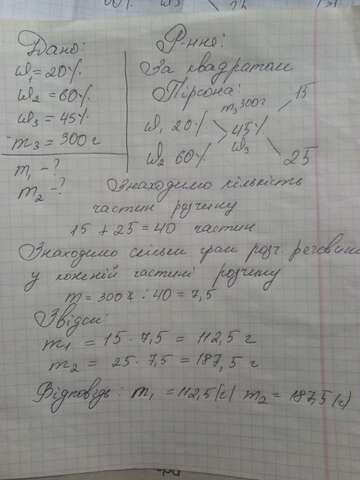 Дано:
ω₁ = 20%
ω₂ = 60%
ω₃ = 45%
m₃ = 300 г
m₁ - ?
m₂ - ?
Р-ння:
За квадратом
Пірсона:
m₃ 300 г 15
ω₁ 20%
45%
ω₃
ω₂ 60% 25
Знаходимо кількість
частин розчину
15 + 25 = 40 частин
Знаходимо скільки грам розч. речовини
у кожній частині розчину
m = 300 г : 40 = 7,5
Звідси:
m₁ = 15 · 7,5 = 112,5 г
m₂ = 25 · 7,5 = 187,5 г
Відповідь: m₁ = 112,5 (г) m₂ = 187,5 (г)